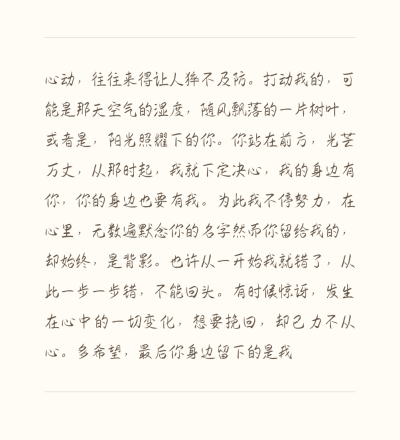 心动，往往来得让人猝不及防。打动我的，可
能是那天空气的湿度，随风飘落的一片树叶，
或者是，阳光照耀下的你。你站在前方，光芒
万丈，从那时起，我就下定决心，我的身边有
你，你的身边也要有我。为此我不停努力，在
心里，无数遍默念你的名字然而你留给我的，
却始终，是背影。也许从一开始我就错了，从
此一步一步错，不能回头。有时候惊讶，发生
在心中的一切变化，想要挽回，却已力不从
心。多希望，最后你身边留下的是我